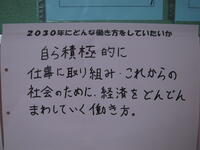 2030年にどんな働き方をしていたいか
自ら積極的に
仕事に取り組み・これからの
社会のために、経済をどんどん
まわしていく働き方。